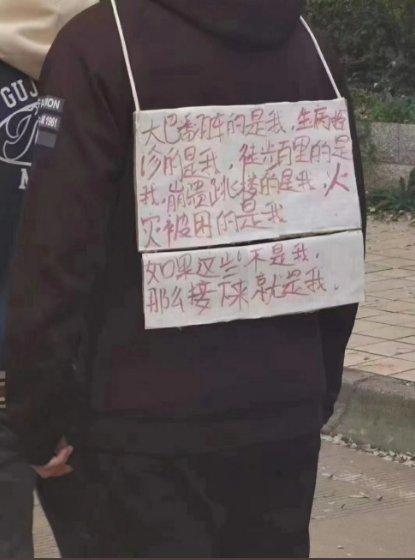 大巴翻车的是我,生病拒
诊的是我,徒步百里的是
我,崩溃跳楼的是我,火
灾被困的是我
如果这些不是我,
那么接下来就是我.
GUJ
1961